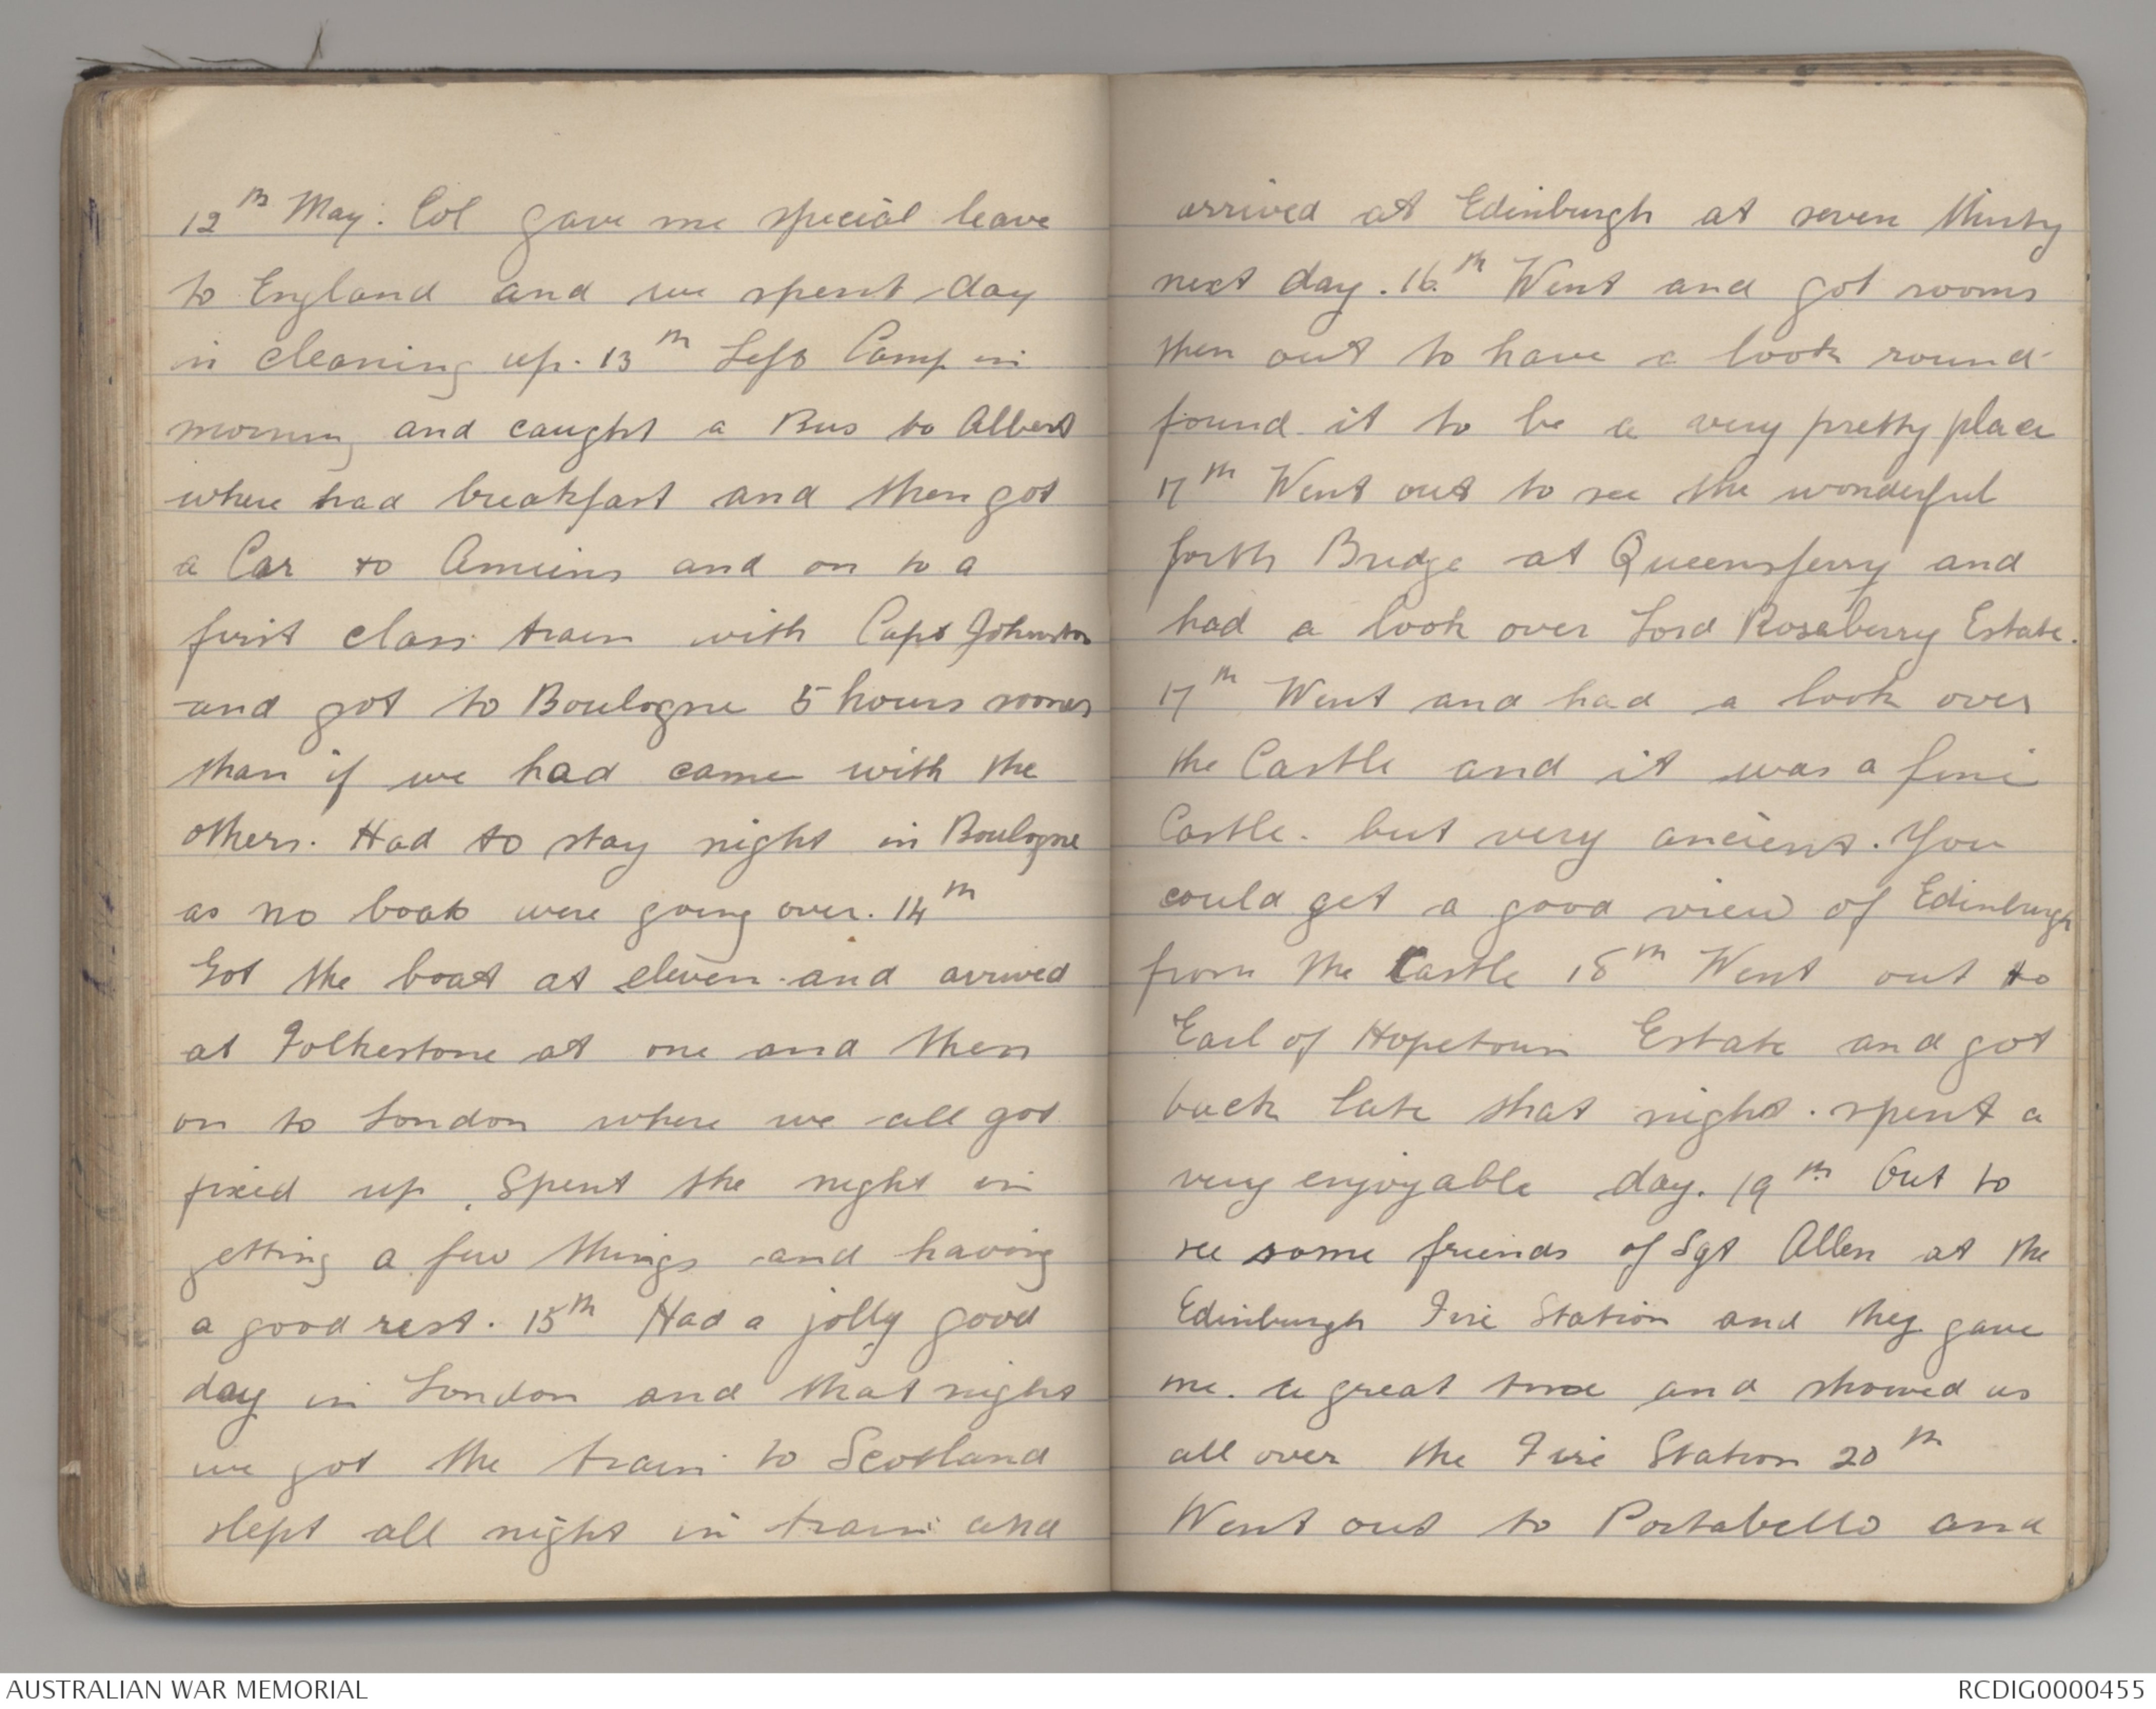 12th May. Col gave me special leave
to England and we spent day
in cleaning up. 13th Left Camp in
morning and caught a Bus to Albert
where had breakfast and then got
a Car to Amiens and on to a
first class train with Capt Johnston
and got to Boulogne 5 hours sooner
than if we had came with the
others. Had to stay night in Boulogne
as no boats were going over. 14th
Got the boat at eleven and arrived
at Folkestone at one and then
on to London where we all got
fixed up. Spent the night in
getting a few things and having
a good rest. 15th Had a jolly good
day in London and that night
we got the train to Scotland
slept all night in train and
arrived at Edinburgh at seven thirty
next day. 16th Went and got rooms
then out to have a look round
found it to be a very pretty place
17th Went out to see the wonderful
forth Bridge at Queensferry and
had a look over Lord Roseberry Estate.
17th Went and had a look over
the Castle and it was a fine
Castle. but very ancient. You
could get a good view of Edinburgh
from the Castle 18th Went out to
Earl of Hopetoun Estate and got
back late that night. spent a
very enjoyable day. 19th Out to
see some friends of Sgt Allen at the
Edinburgh Fire Station and they gave
me. a great time and showed us
all over the Fire Station 20th
Went out to Portabello and
AUSTRALIAN WAR MEMORIAL
RCDIG0000455